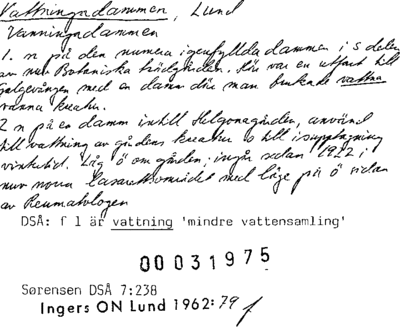 Vattningsdammen, Lund
Vanningsdammen
1. n på den numera igenfyllda dammen i S delen
av nuv. Botaniska trädgården. Här var en utfart till
galgevången med en damm där man brukade vattna
vånna kreatur.
2 n på en damm intill Helgonagården, använd
till vattning av gårdens kreatur o till isupptagning
vintertid. Låg ö om gården; ingår sedan 1922 i
nuv norra lasarettsområdet med läge på ö sidan
av Reumatologen
DSÅ: f l är vattning 'mindre vattensamling'
00031975
Sørensen DSÅ 7:238
Ingers ON Lund 1962:79